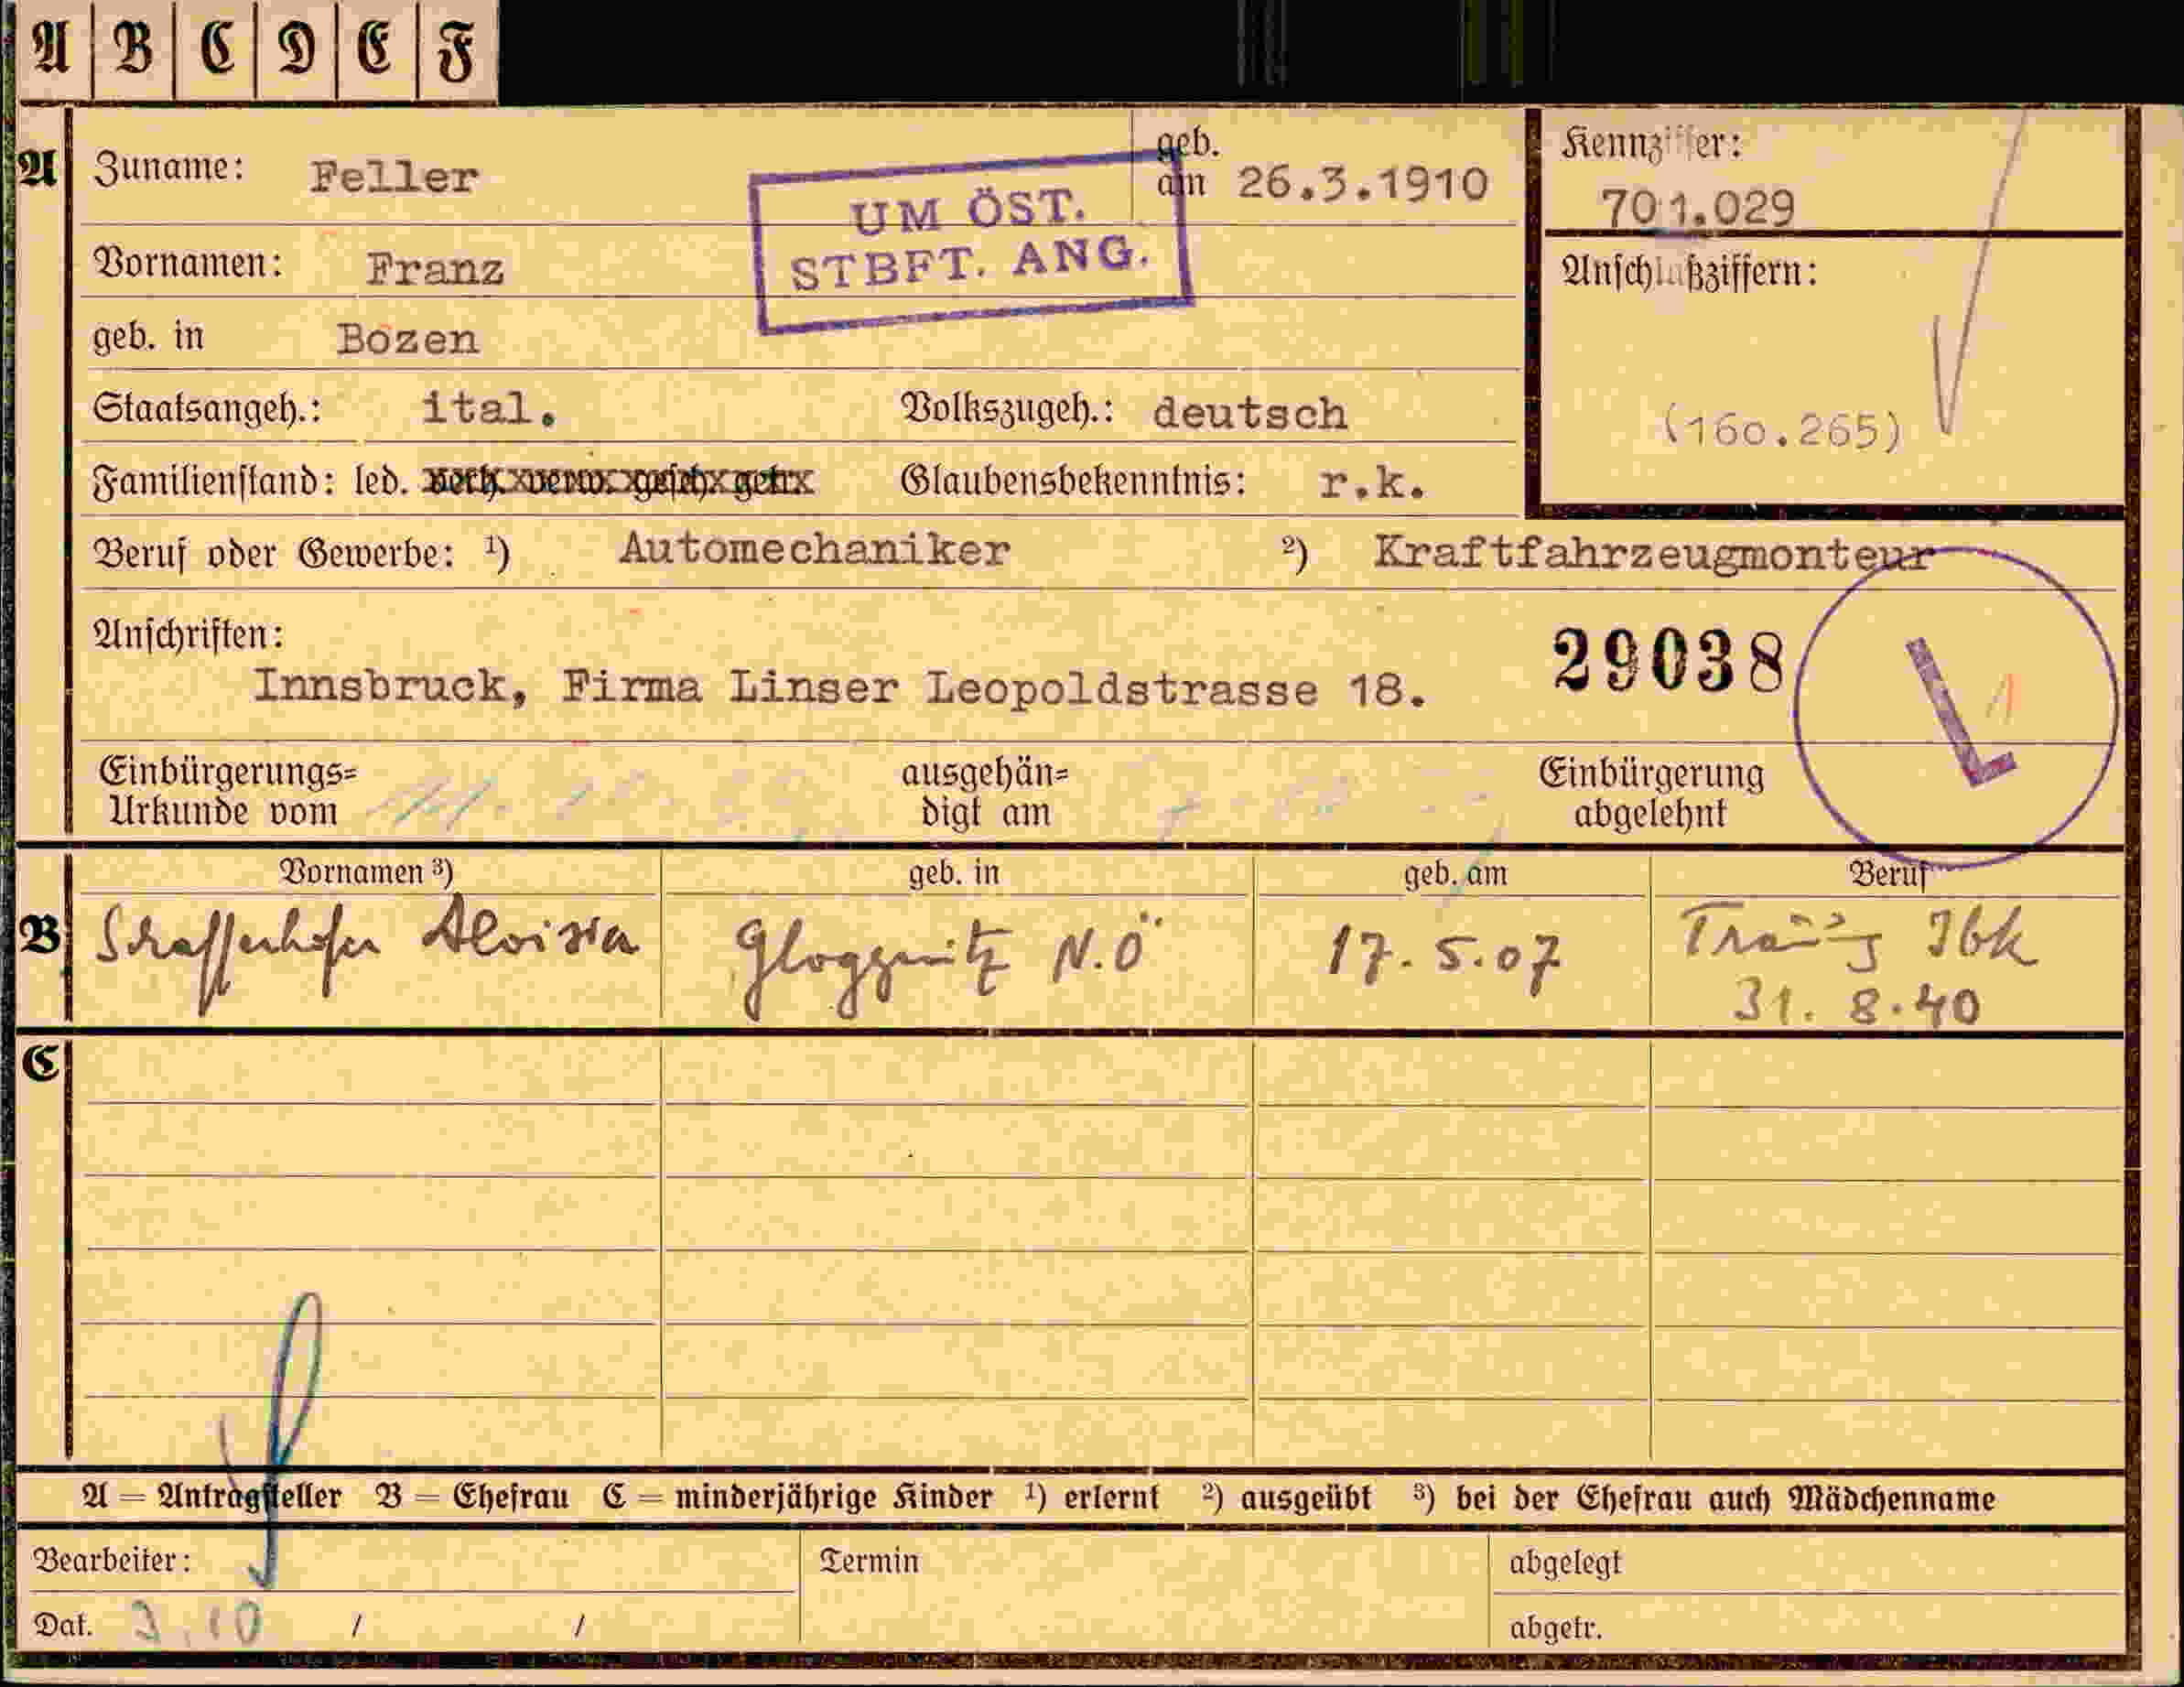 A B C D E F
A Zuname: Feller geb. am 26.3.1910 Kennziffer: 701.029
UM ÖST.
STBFT. ANG.
Vornamen: Franz
Anschlußziffern:
geb. in Bozen
(160.265)
Staatsangeh.: ital. Volkszugeh.: deutsch
Familienstand: led. verh. verw. gesch. getr. Glaubensbekenntnis: r.k.
Beruf oder Gewerbe: ¹) Automechaniker ²) Kraftfahrzeugmonteur
Anschriften: 29038
Innsbruck, Firma Linser Leopoldstrasse 18.
L 1
Einbürgerungs= ausgehän= Einbürgerung
Urkunde vom digt am abgelehnt
Vornamen ³) geb. in geb. am Beruf
B Schaffenhofer Aloisia Gloggnitz N.Ö 17.5.07 Ibk
31.8.40
C
A = Antragsteller B = Ehefrau C = minderjährige Kinder ¹) erlernt ²) ausgeübt ³) bei der Ehefrau auch Mädchenname
Bearbeiter: Termin abgelegt
Dat. 3.10 / / abgetr.